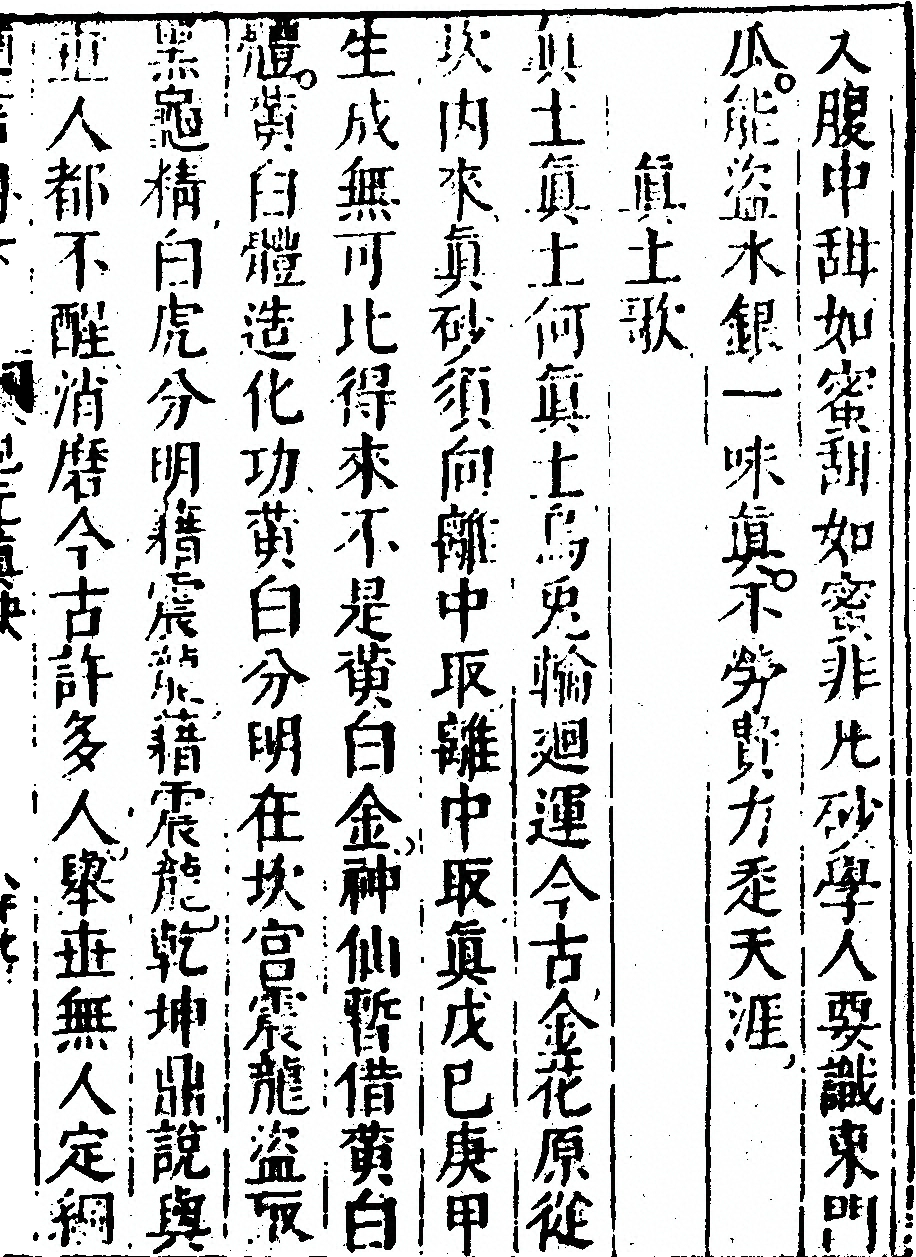 入腹中甜如蜜甜如蜜非凡砂學人要識東門
瓜能盜水銀一味眞不勞費力走天涯
眞土歌
眞土眞土何眞土烏兎輪迴運今古金花原從
坎內來眞砂須向離中取離中取眞戊己庚甲
生成無可比得來不是黃白金神仙暫借黃白
體黃白體造化功黃白分明在坎宮震龍盜取
黑龜精白虎分明藉震龍藉震龍乾坤鼎說與
世人都不醒消磨今古許多人舉世無人定綱